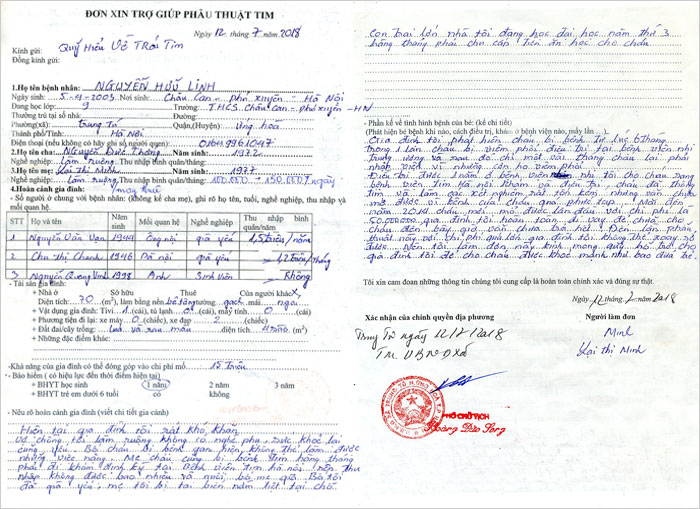 ĐƠN XIN TRỢ GIÚP PHẪU THUẬT TIM
Ngày 12 tháng 7 năm 2018
Kính gửi: Quỹ Hiểu Về Trái Tim
Đồng kính gửi:
1.Họ tên bệnh nhân: NGUYỄN HỮU LINH
Ngày sinh: 5-4-2003 Nơi sinh: Châu Can - Phú Xuyên - Hà Nội
Đang học lớp: 9 Trường: THCS Châu Can - Phú Xuyên - HN
Thường trú tại số nhà: Đường:
Phường(xã): Trung Tú Quận,(Huyện): Ứng Hòa
Thành phố/Tỉnh: Hà Nội
Điện thoại (nếu không có hãy ghi số người quen): 01649961047
2.Họ tên cha: Nguyễn Đức Thông Năm sinh: 1972
Nghề nghiệp: Làm ruộng Thu nhập bình quân/tháng:
3.Họ tên mẹ: Kai thi Minh Năm sinh: 1977
Nghề nghiệp: Làm ruộng Thu nhập bình quân/tháng: 100.000 - 150.000đ/ngày
4.Hoàn cảnh gia đình: may thuê
- Số người ở chung với bệnh nhân: (không kể cha mẹ), ghi rõ họ tên, tuổi, nghề nghiệp, thu nhập và mối quan hệ
STT Họ và tên Năm sinh Mối quan hệ Nghề nghiệp Thu nhập bình quân/năm
1 Nguyễn Văn Vạn 1944 Ông nội già yếu 1,5 triệu/năm
2 Chu Thị Chanh 1946 Bà nội già yếu 1,2 triệu/tháng
3 Nguyễn Quang Vinh 1998 Anh Sinh Viên Không
- Tài sản gia đình:
+ Nhà ở Sở hữu Thuê Của người khác
Diện tích: 70 (m²), làm bằng nền bê tông tường gạch mái ngói
+ Vật dụng gia đình: Tivi 1 (cái), tủ lạnh 0 (cái), máy tính 0 (cái)
+ Phương tiện đi lại: xe máy 0 (chiếc), xe đạp 2 (chiếc)
+ Đất đai/cây trồng: Lúa và rau màu diện tích (m²)
+ Những đặc điểm khác:
-Khả năng của gia đình có thể đóng góp vào chi phí mổ 15 triệu
- Bảo hiểm ( có hiệu lực đến thời điểm hiện tại)
+ BHYT học sinh 1 năm 2 năm 3 năm
+ BHYT trẻ em dưới 6 tuổi có không
- Nêu rõ hoàn cảnh gia đình (viết chi tiết gia cảnh)
Hiện tại gia đình rất rất khó khăn
Vợ chồng tôi làm ruộng không có nghề phụ. Sức khỏe lại
cũng yếu. Bố cháu bị bệnh gan hiện không thể làm được
những việc nặng. Mẹ cháu cũng bị bệnh tim hàng tháng
phải đi khám định kỳ tại Bệnh viện Tim hà nội nên thu
nhập không được bao nhiêu và nuôi bố mẹ già. Bà tôi
đã già yếu, mẹ tôi bị tai biến nằm liệt tại chỗ.
Con trai lớn nhà tôi đang học đại học năm thứ 3
hàng tháng phải chu cấp tiền ăn học cho cháu
- Phần kể về tình hình bệnh của bé: (kể chi tiết)
(Phát hiện bé bệnh khi nào, cách điều trị, khám ở bệnh viện nào, mấy lần...)
Gia đình tôi phát hiện cháu bị bệnh từ lúc 6 tháng
trong 1 lần cháu bị viêm phổi điều trị tại bệnh viện nhi
Trung ương và sau đó chỉ một vài tháng cháu lại phải
nhập viện vì những cơn ho viêm phổi
Điều trị được 1 năm ở bệnh viện nhi tôi cho cháu sang
bệnh viện Tim Hà nội khám và điều trị, cháu đã thông
tim và làm các xét nghiệm rất nhiều lần nhưng vẫn chưa
mổ được vì bệnh của cháu quá phức tạp. Mãi đến
năm 2014 cháu mới mổ được lần đầu với chi phí là
50.000.000đ gia đình tôi hoàn toàn đi vay để chữa cho
cháu đến bây giờ vẫn chưa trả hết. Đến lần phẫu
thuật này với chi phí quá lớn gia đình tôi không thể xoay sở
được. Nên tôi làm đơn này kính mong quý hỗ trợ cho
gia đình tôi để cho cháu được khỏe mạnh như bao đứa trẻ.
Tôi xin cam đoan những thông tin chúng tôi cung cấp là hoàn toàn chính xác và đúng sự thật.
Ngày 12 tháng 7 năm 2018
Xác nhận của chính quyền địa phương
Người làm đơn
Trung Tú ngày 12/7/2018
TM UBND Xã
Minh
Kai thi Minh
PHÓ CHỦ TỊCH
Hoàng Đăng Long